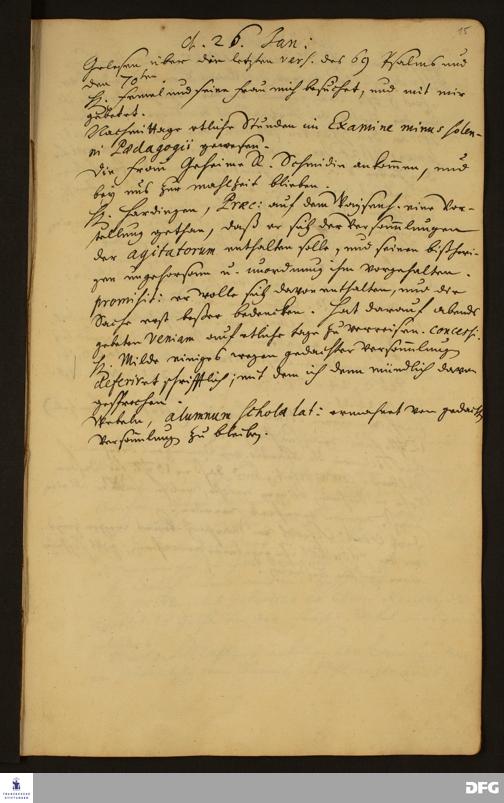 15
d. 26. Jan:
Gelesen über die letzten vers. des 69 Psalms und
den 70ten.
H. Hemel und seine Frau mich besuchet, und mit mir
gebetet.
Nachmittags etliche Stunden im Examine minus solen-
ni Pædagogii gewesen.
Die Frau Geheime R. Schmidin ankom̃en, und
bey uns zur Mahlzeit blieben.
H. Hardingen, Præc: auf dem Waysenh. eine Vor-
stellung gethan, daß er sich der Versam̃lungen
der agitatorum enthalten solle, und seinen bißheri-
gen ungehorsam u. unordnung ihm vorgehalten.
promisit: er wolle sich davon enthalten, und die
Sache erst besser bedencken. Hat darauf abends
gebeten veniam auf etliche tage zu verreisen. concessi.
H. Milde einiges wegen gedachter Versam̃lung
referiret schrifftlich; mit dem ich denn mündlich davon
gesprochen.
alumnum scholæ lat: ermahnet von gedacht.
Versam̃lung zu bleiben.
FRANCKESCHE
STIFTUNGEN
DFG